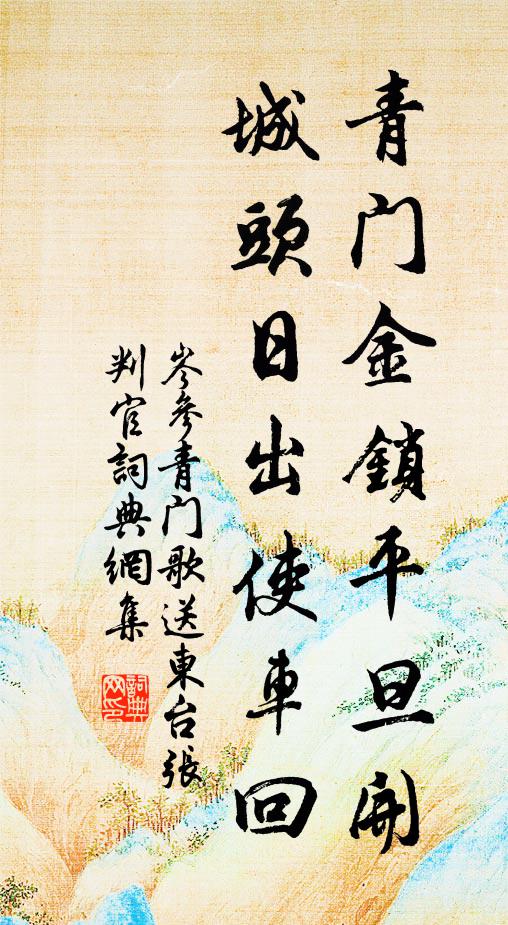 青门金鎖平旦開
城頭日出使車回
岑參青门歌送東台張
判官詞典網集
詞典网印